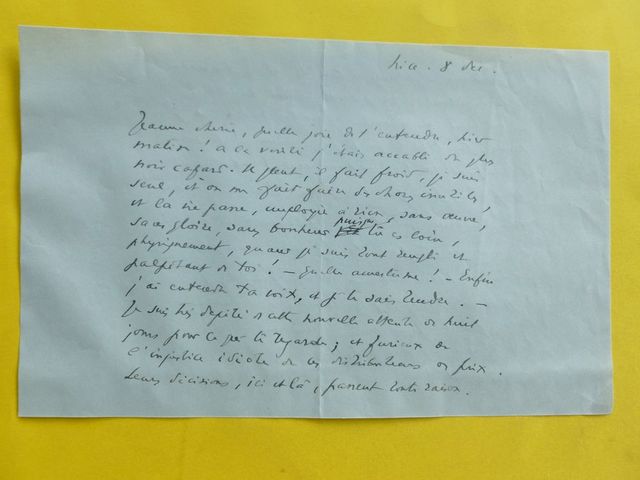 Nice. 8 dec.
Jeanne chérie, quelle joie de t'entendre, hier
matin ! à la vérité j'étais accablé du plus
noir cafard. Il pleut, il fait froid, je suis
seul, et on me fait faire des choses inutiles,
et la vie passe, employée à rien, sans œuvre,
sans gloire, sans bonheur puisque tu es loin,
physiquement, quand je suis tout rempli et
palpitant de toi ! — quelle amertume ! — Enfin
j'ai entendu ta voix, et je te sais tendre. —
Je suis très dépité de cette nouvelle attente de huit
jours pour ce qui te regarde ; et furieux de
l'injustice idiote de ces distributeurs de prix.
Leurs décisions, ici et là, passent toute raison.